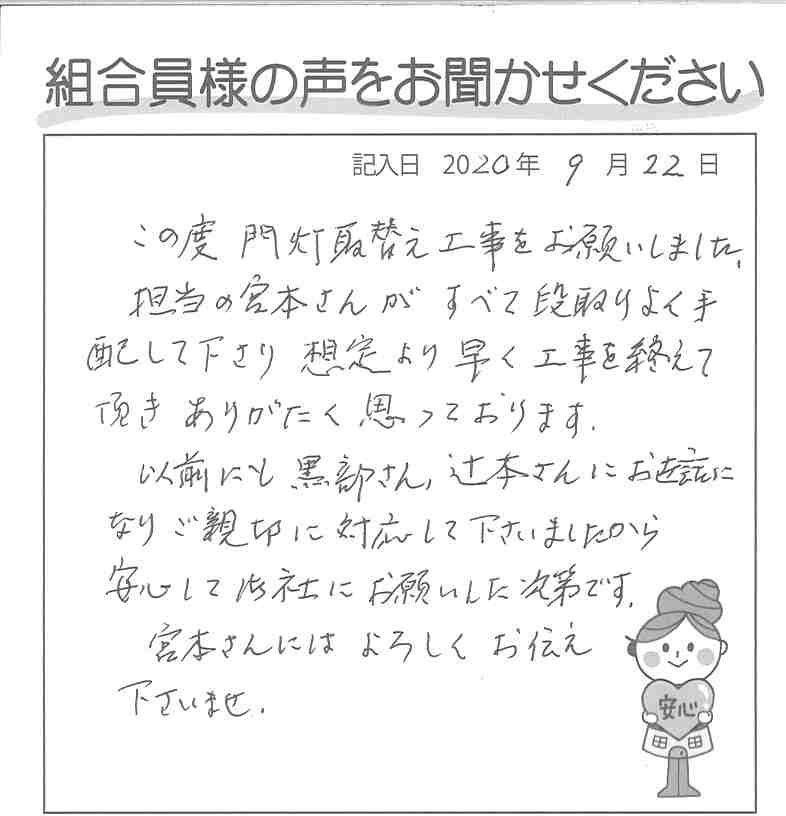 組合員様の声をお聞かせください
記入日 2020年 9月22日
この度 門灯取替え工事をお願いしました。
担当の宮本さんが すべて段取りよく手
配して下さり 想定より 早く工事を終えて
頂き ありがたく思っております。
以前にも 黒部さん, 辻本さんにお世話に
なりご親切に対応して下さいましたから
安心して御社にお願いした次第です。
宮本さんには よろしく お伝え
下さいませ。
安心